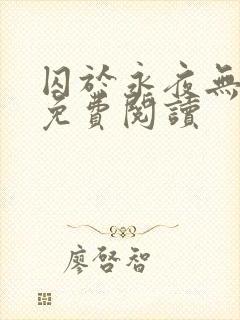 囚於永夜無
免費閱讀
廖啓智